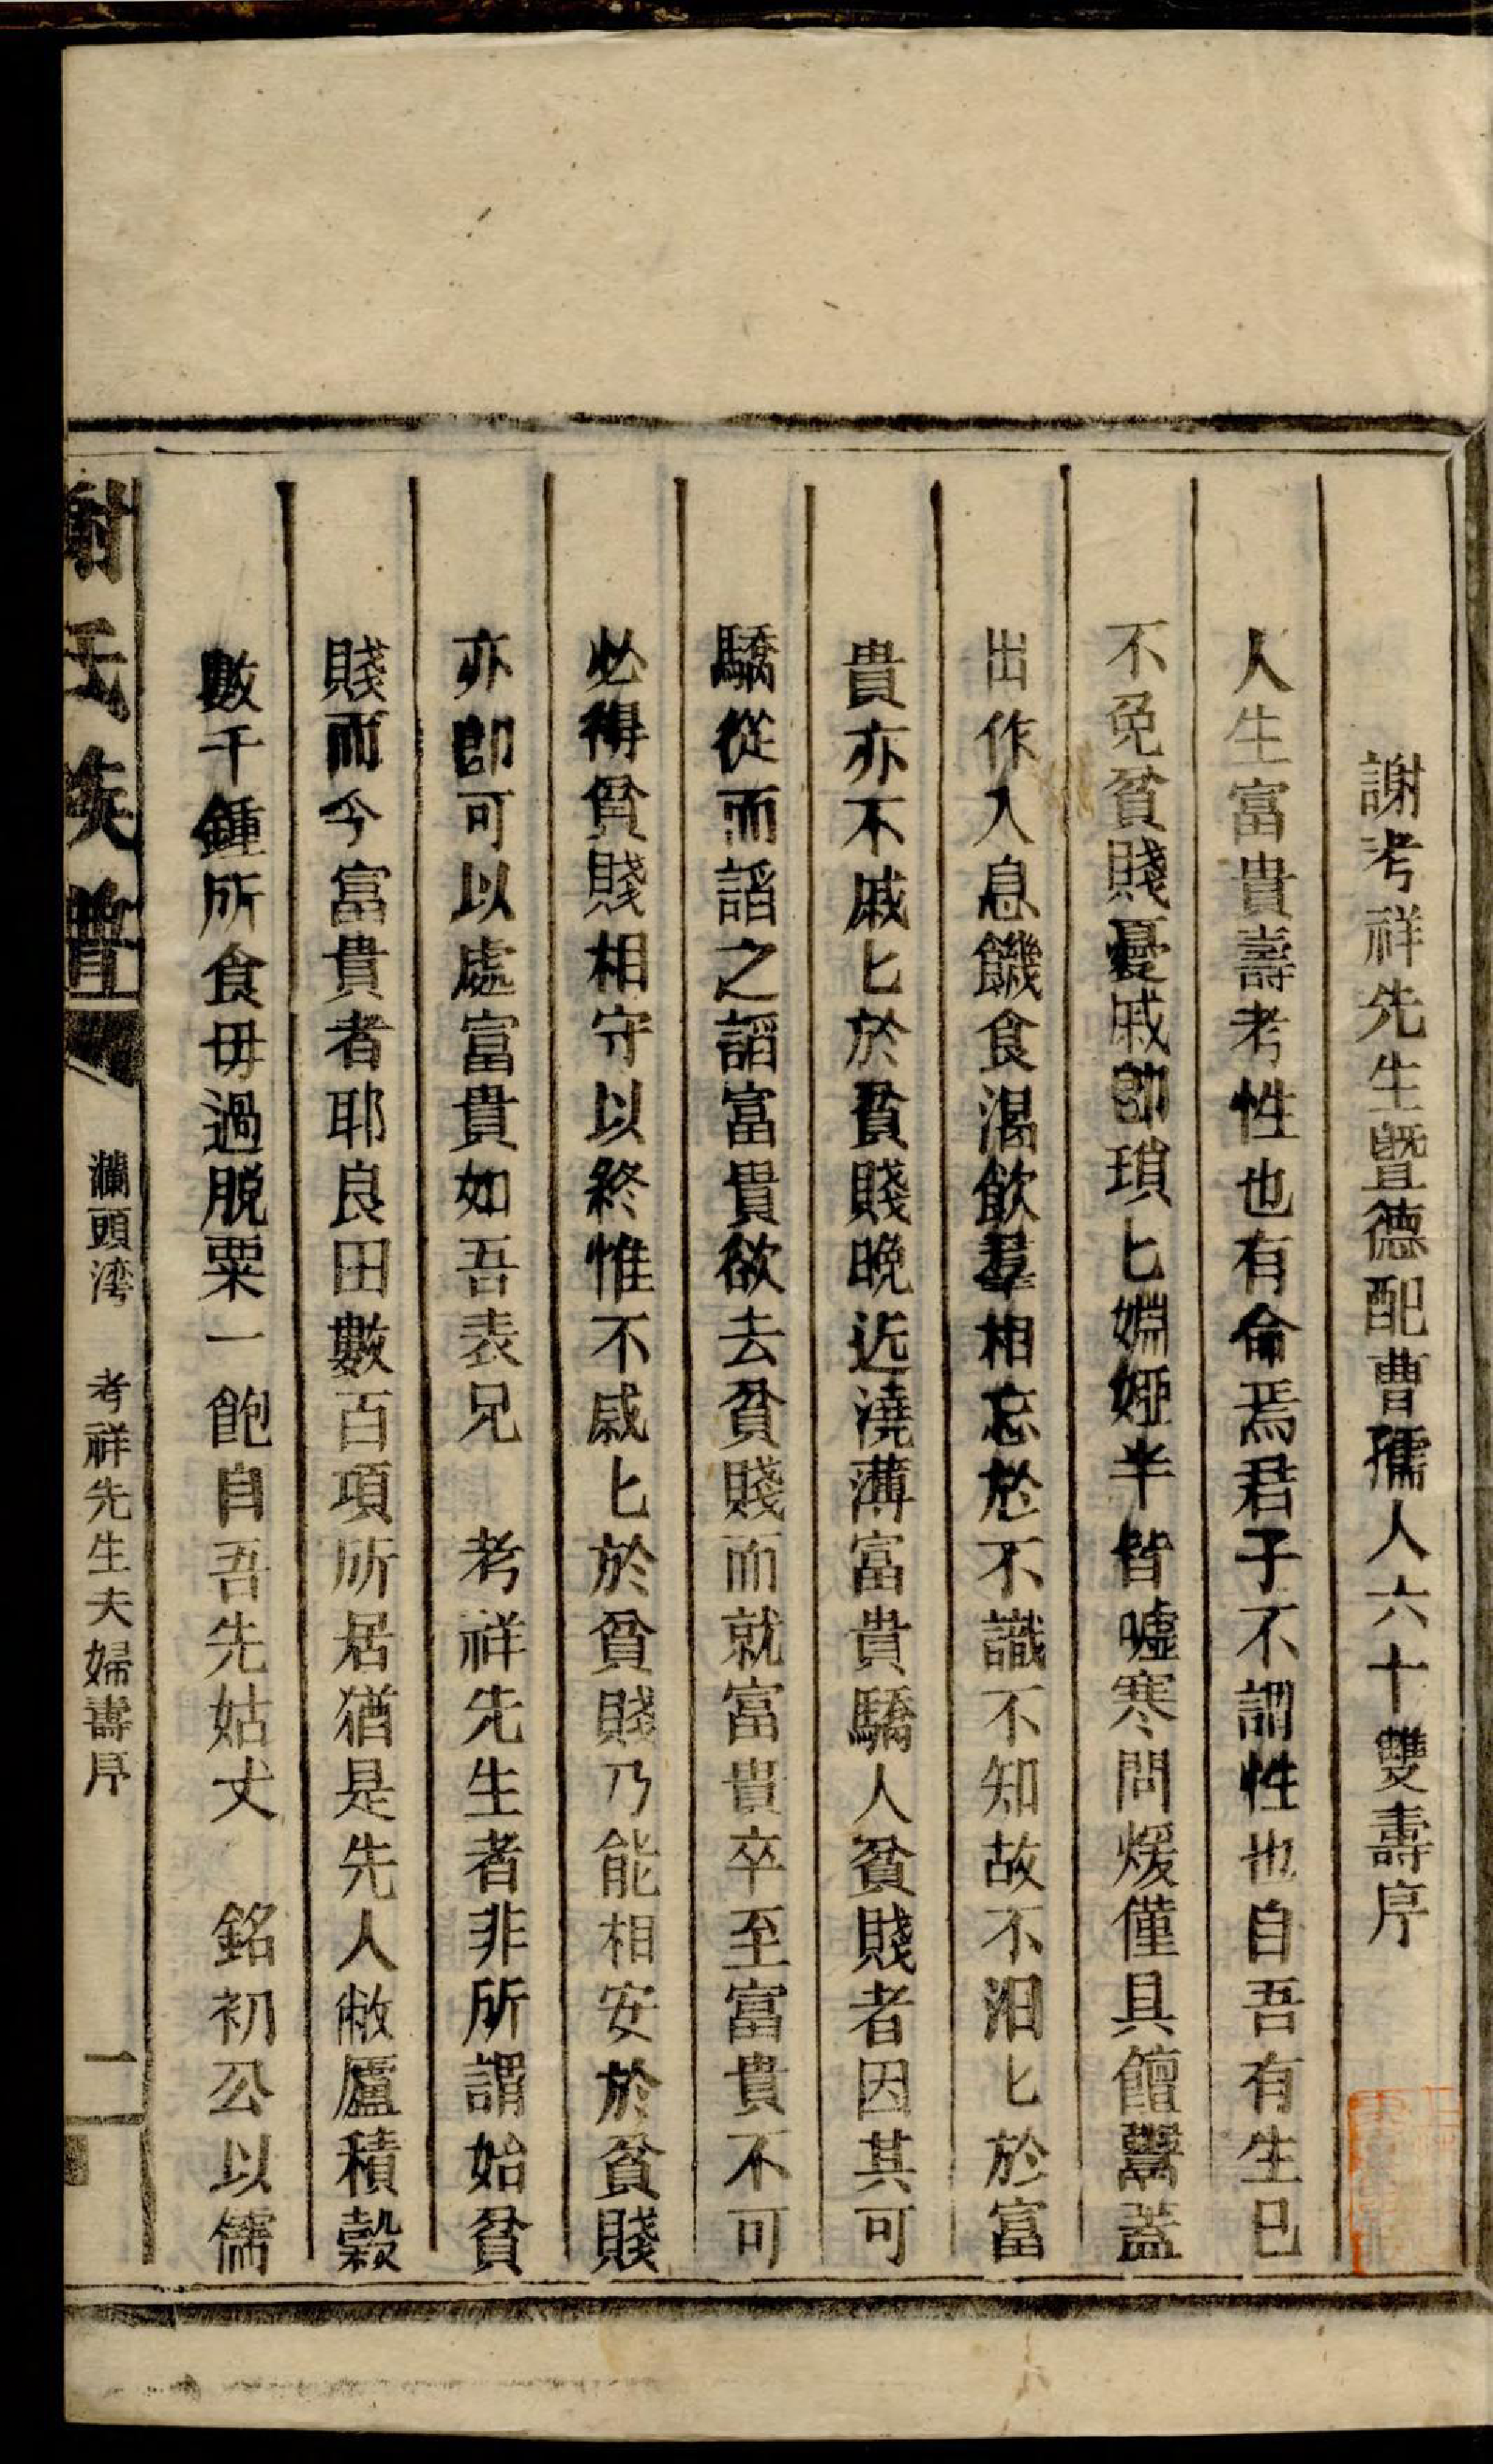 謝考祥先生暨德配曹孺人六十雙壽序
人生富貴壽考性也有侖焉君子不謂性也自吾有生已
不免貧賤憂戚卽瑣匕婣婭半皆噓寒問煖僅具饘鬻蓋
出作入息饑食渴飲羣相忘於不識不知故不汨匕於富
貴亦不戚匕於貧賤晚近澆薄富貴驕人貧賤者因其可
驕從而謟之謟富貴欲去貧賤而就富貴卒至富貴不可
必得貧賤相守以終惟不戚匕於貧賤乃能相安於貧賤
亦卽可以處富貴如吾表兄　考祥先生者非所謂始貧
賤而今富貴者耶良田數百項所居猶是先人敝廬積穀
數千鍾所食毋過脫粟一飽自吾先姑丈　銘初公以儒
謝氏族譜
瀾頭湾　考祥先生夫婦壽序
一